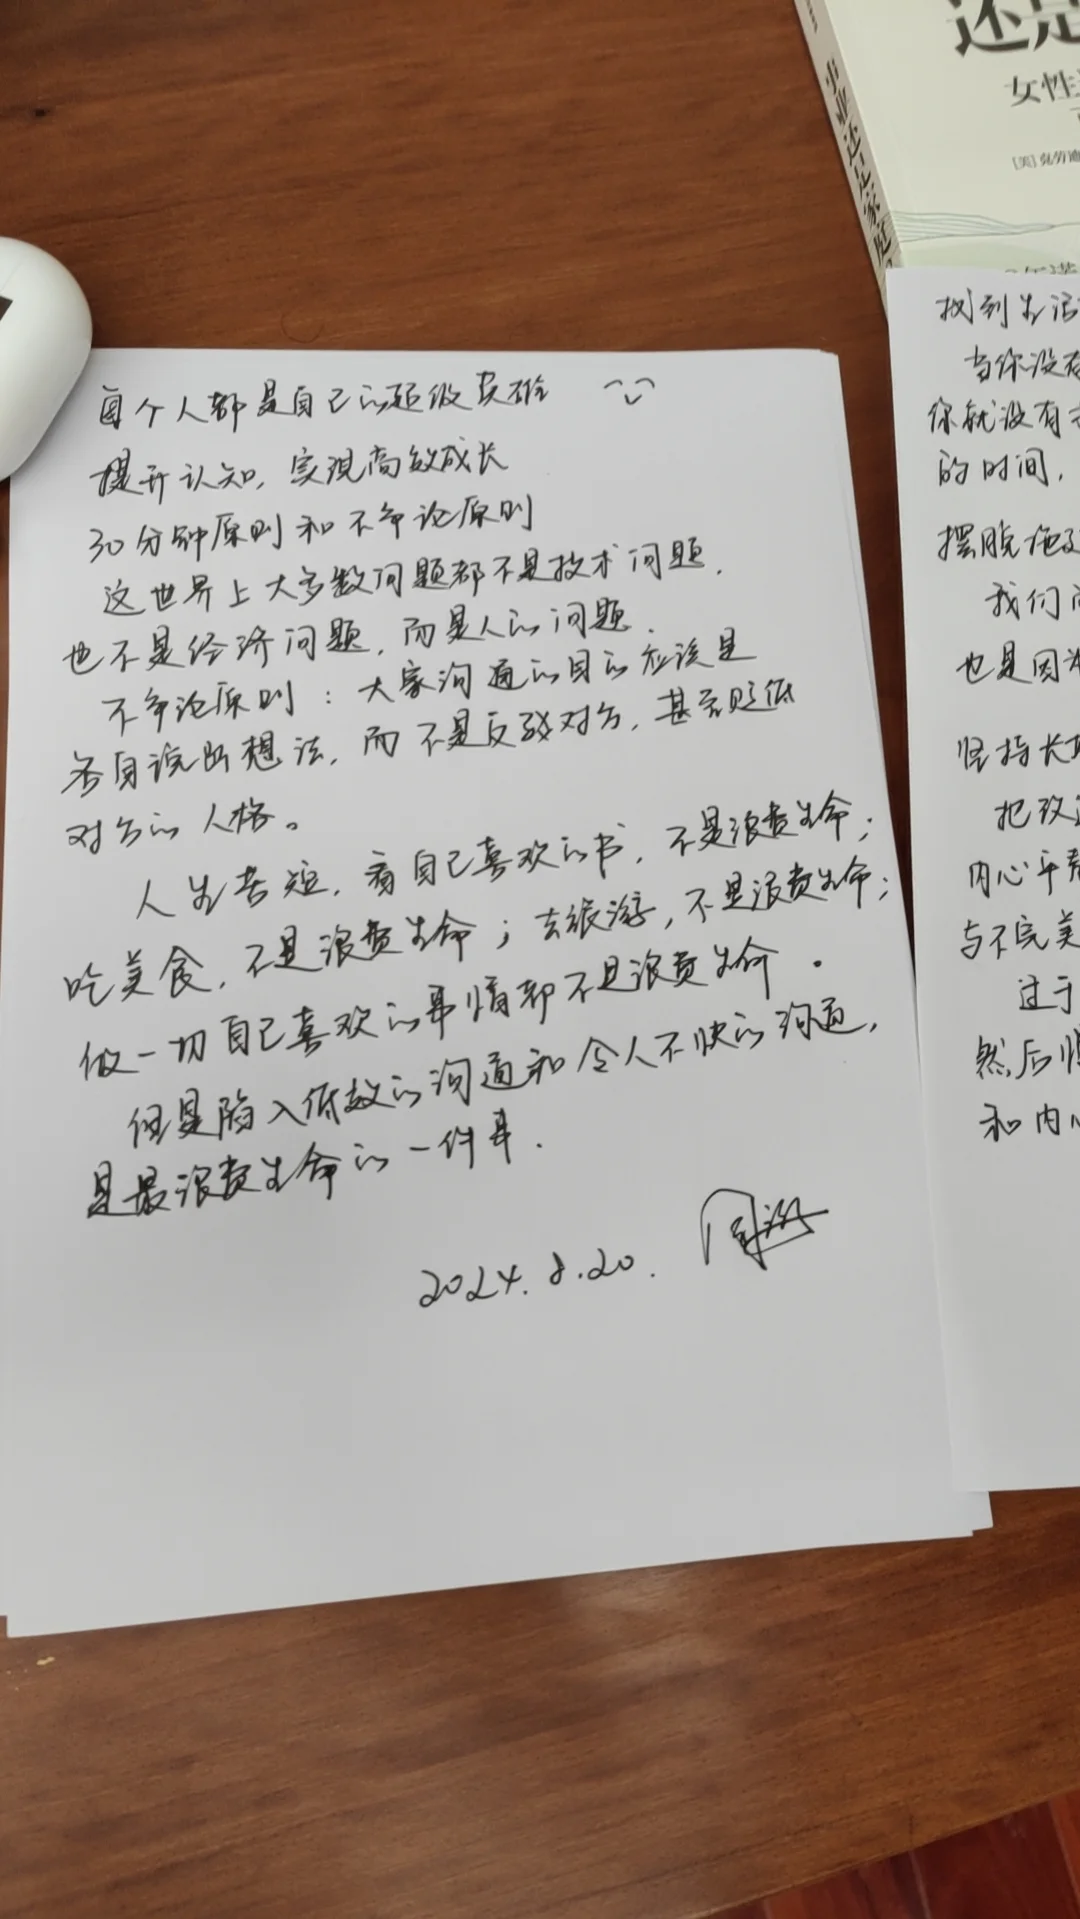 还是
女性
[美]克劳迪
事业还是家庭
每个人都是自己的超级英雄
提升认知,实现高效成长
30分钟原则和不争论原则
这世界上大多数问题都不是技术问题,
也不是经济问题,而是人的问题.
不争论原则:大家沟通的目的应该是
各自说出想法,而不是反驳对方,甚至贬低
对方的人格。
人生苦短,看自己喜欢的书,不是浪费生命;
吃美食,不是浪费生命;去旅游,不是浪费生命;
做一切自己喜欢的事情都不是浪费生命。
但是陷入低效的沟通和令人不快的沟通,
是最浪费生命的一件事.
2024.8.20.
找到生活
当你没有
你就没有
的时间,
摆脱
我们
也是因为
坚持长
把改
内心平
与不完美
过于
然后
和内心